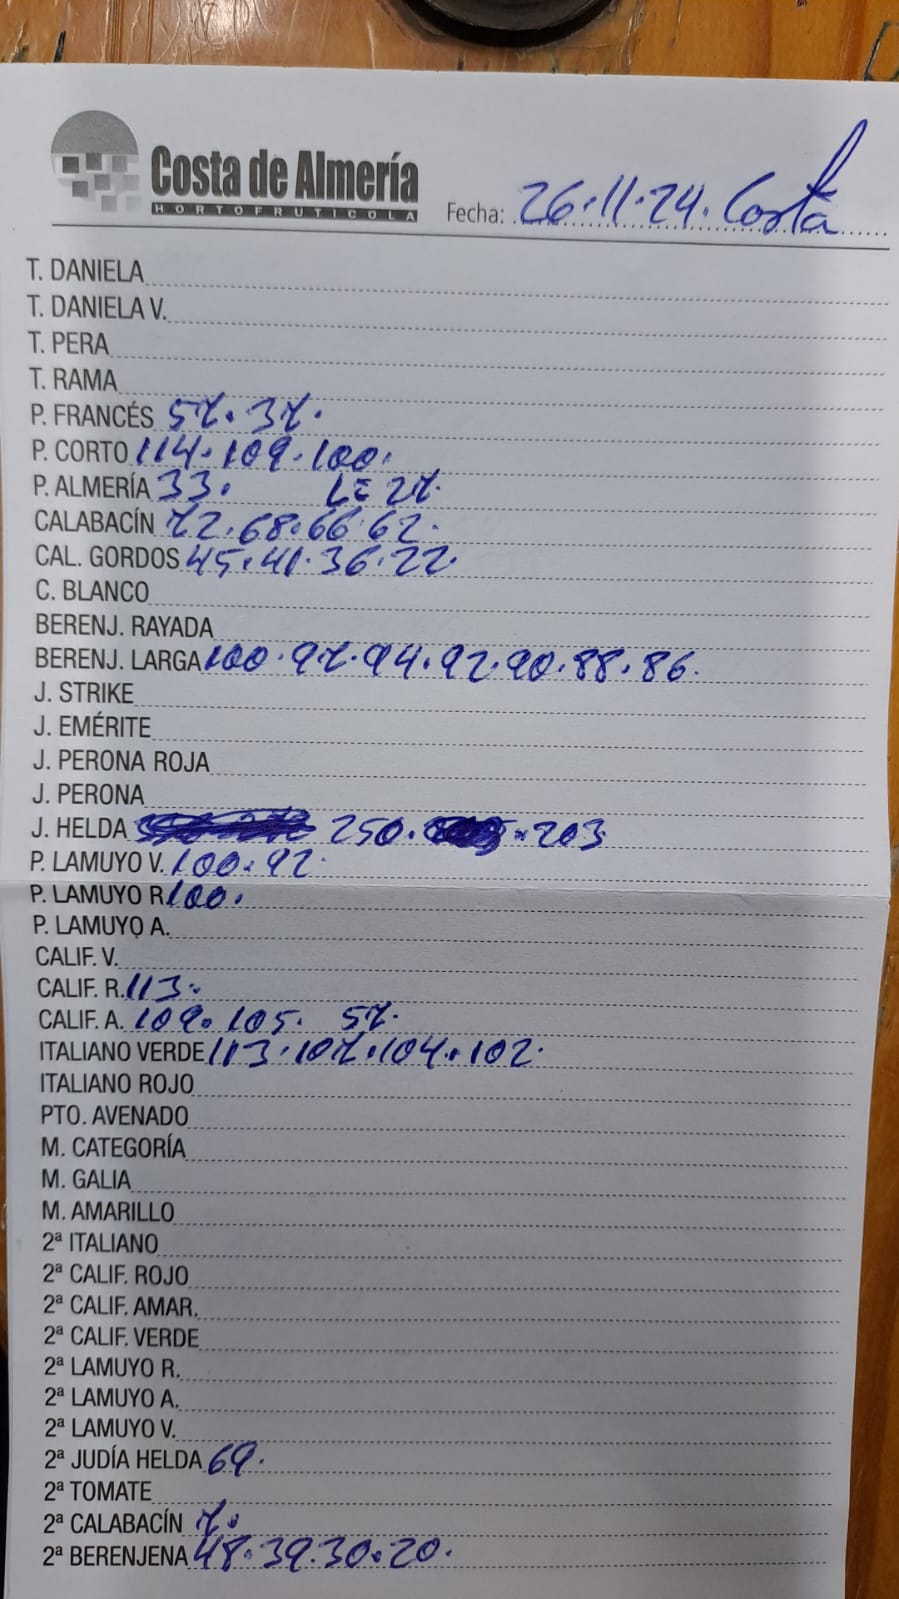 Costa de Almería
HORTOFRUTICOLA
Fecha: 26.11.24. Costa
T. DANIELA
T. DANIELA V.
T. PERA
T. RAMA
P. FRANCÉS 57. 37.
P. CORTO 114. 109. 100.
P. ALMERÍA 33. L= 27.
CALABACÍN 72. 68. 66. 62.
CAL. GORDOS 45. 41. 36. 22.
C. BLANCO
BERENJ. RAYADA
BERENJ. LARGA 100. 97. 94. 92. 90. 88. 86.
J. STRIKE
J. EMÉRITE
J. PERONA ROJA
J. PERONA
J. HELDA 250. 203
P. LAMUYO V. 100. 92.
P. LAMUYO R. 100.
P. LAMUYO A.
CALIF. V.
CALIF. R. 113.
CALIF. A. 109. 105. 57.
ITALIANO VERDE 113. 107. 104. 102.
ITALIANO ROJO
PTO. AVENADO
M. CATEGORÍA
M. GALIA
M. AMARILLO
2ª ITALIANO
2ª CALIF. ROJO
2ª CALIF. AMAR.
2ª CALIF. VERDE
2ª LAMUYO R.
2ª LAMUYO A.
2ª LAMUYO V.
2ª JUDÍA HELDA 69.
2ª TOMATE
2ª CALABACÍN 7.
2ª BERENJENA 48. 39. 30. 20.